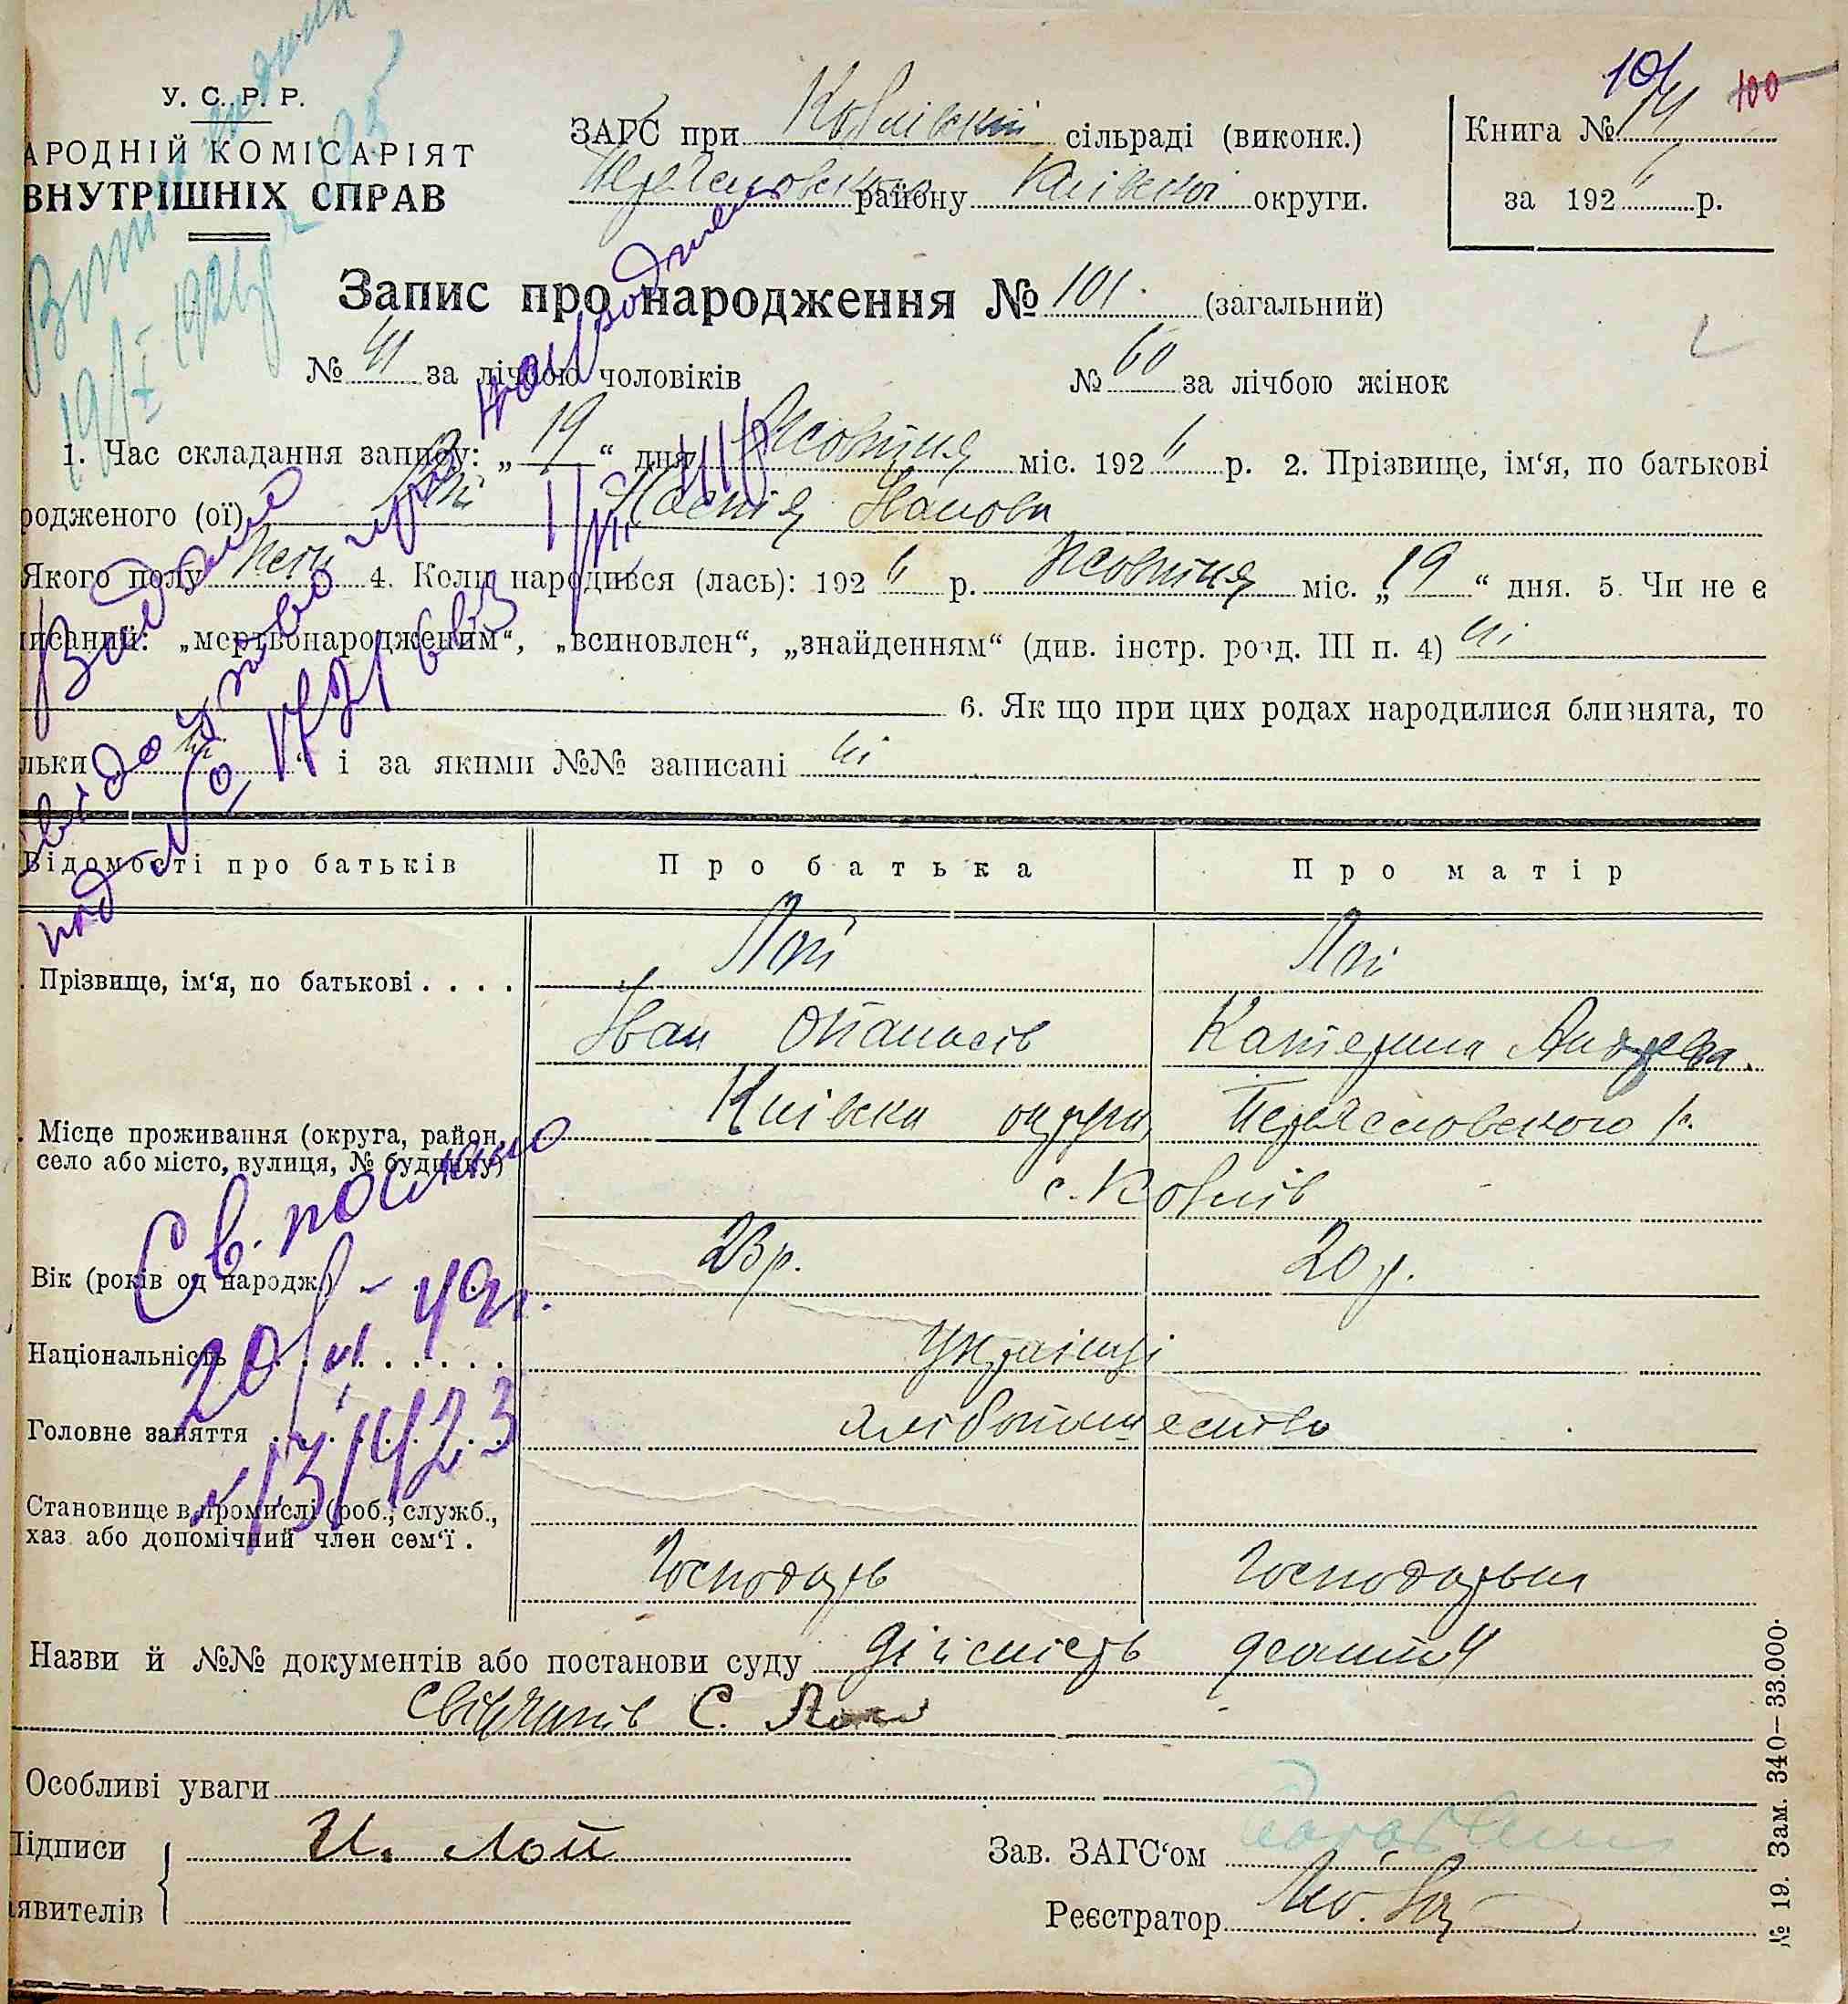 У. С. Р. Р.
АРОДНІЙ КОМІСАРІЯТ
ВНУТРІШНІХ СПРАВ
ЗАГС при Ковлівській сільраді (виконк.)
району Київської округи.
101 100
Книга № 14
за 1926 р.
Запис про народження № 101. (загальний)
№ 41 за лічбою чоловіків № 60 за лічбою жінок
1. Час складання запису: „19“ дня Жовтня міс. 1926 р. 2. Прізвище, ім‘я, по батькові
родженого (ої) Лой Настія Іванова
Якого полу жен 4. Коли народився (лась): 1926 р. Жовтня міс. „19“ дня. 5. Чи не є
писаний: „мертвонародженим“, „всиновлен“, „знайденням“ (див. інстр. розд. III п. 4) ні
6. Як що при цих родах народилися близнята, то
льки ні і за якими №№ записані ні
Відомості про батьків Про батька Про матір
Прізвище, ім‘я, по батькові . . . . Лой Лой
Іван Опанасів Катерина Андрєєва.
Місце проживання (округа, район, село або місто, вулиця, № будинку) Київска округи Переяславського р.
с. Ковлів
Вік (років од народж.) 23 р. 20 р.
Національність . . . . . . . українці
Головне заняття . . . . . . хліборобство
Становище в промислі (роб., служб.,
хаз. або допомічний член сем‘ї . Господарь Господарька
Назви й №№ документів або постанови суду дійсність
С. Лой
Особливі уваги
Підписи И. Лой Зав. ЗАГС‘ом
явителів Реєстратор
№ 19. Зам. 340—33.000.
Св. послано
20/VI - 49г.
№ 13/1423